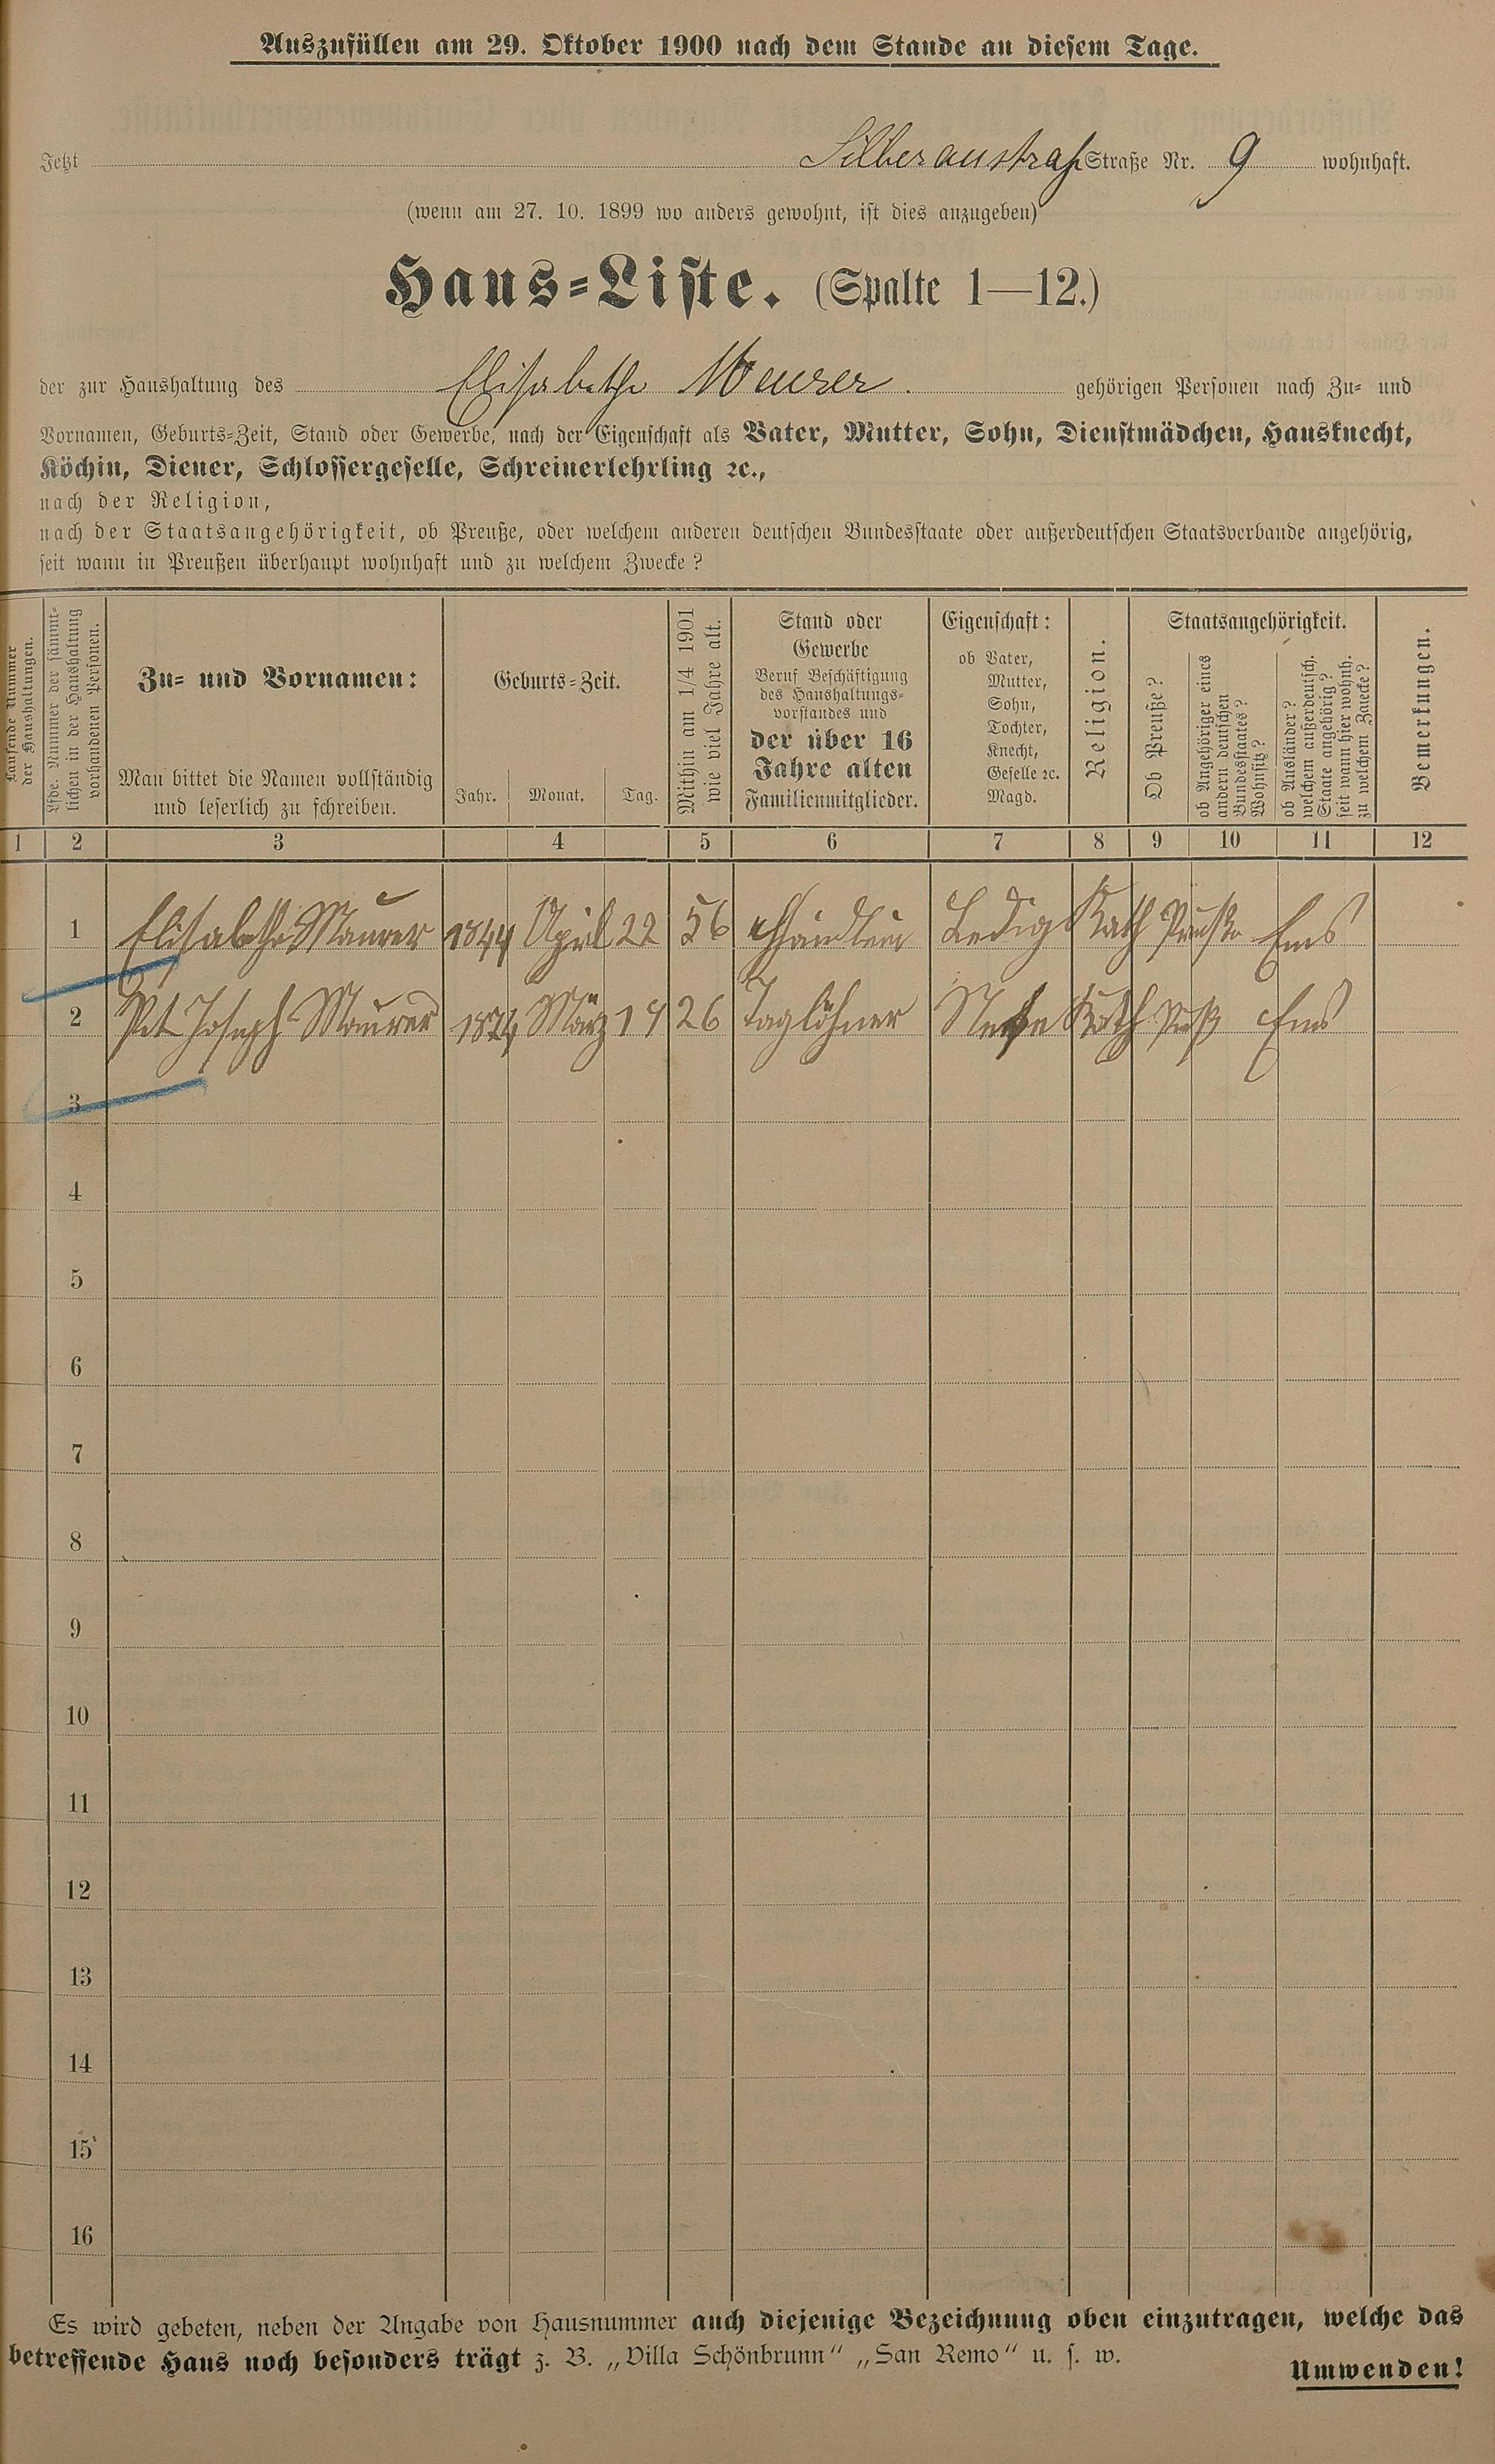 Auszufüllen am 29. Oktober 1900 nach dem Stande an diesem Tage.
Jetzt Silberaustraß Straße Nr. 9 wohnhaft.
(wenn am 27. 10. 1899 wo anders gewohnt, ist dies anzugeben)
Haus-Liste. (Spalte 1—12.)
der zur Haushaltung des Elisabethe Meurer gehörigen Personen nach Zu- und
Vornamen, Geburts-Zeit, Stand oder Gewerbe, nach der Eigenschaft als Vater, Mutter, Sohn, Dienstmädchen, Hausknecht,
Köchin, Diener, Schlossergeselle, Schreinerlehrling ꝛc.,
nach der Religion,
nach der Staatsangehörigkeit, ob Preuße, oder welchem anderen deutschen Bundesstaate oder außerdeutschen Staatsverbande angehörig,
seit wann in Preußen überhaupt wohnhaft und zu welchem Zwecke?
Laufende Nummer
der Haushaltungen.
Lfde. Nummer der sämmt-
lichen in der Haushaltung
vorhandenen Personen.
Zu- und Vornamen:
Man bittet die Namen vollständig
und leserlich zu schreiben.
Geburts-Zeit.
Jahr. Monat. Tag.
Mithin am 1/4 1901
wie viel Jahre alt.
Stand oder
Gewerbe
Beruf Beschäftigung
des Haushaltungs-
vorstandes und
der über 16
Jahre alten
Familienmitglieder.
Eigenschaft:
ob Vater,
Mutter,
Sohn,
Tochter,
Knecht,
Geselle ꝛc.
Magd.
Religion.
Staatsangehörigkeit.
Ob Preuße?
ob Angehöriger eines
andern deutschen
Bundesstaates?
Wohnsitz?
ob Ausländer?
welchem außerdeutsch.
Staate angehörig?
seit wann hier wohnh.
zu welchem Zwecke?
Bemerkungen.
1 2 3 4 5 6 7 8 9 10 11 12
1 Elisabethe Maurer 1844 April 22 56 Händlein Ledig Kath Preuße Ems
2 Pet Joseph Maurer 1874 März 14 26 Taglöhner Neffe Kath Ems
3
4
5
6
7
8
9
10
11
12
13
14
15
16
Es wird gebeten, neben der Angabe von Hausnummer auch diejenige Bezeichnung oben einzutragen, welche das
betreffende Haus noch besonders trägt z. B. „Villa Schönbrunn“ „San Remo“ u. s. w.
Umwenden!